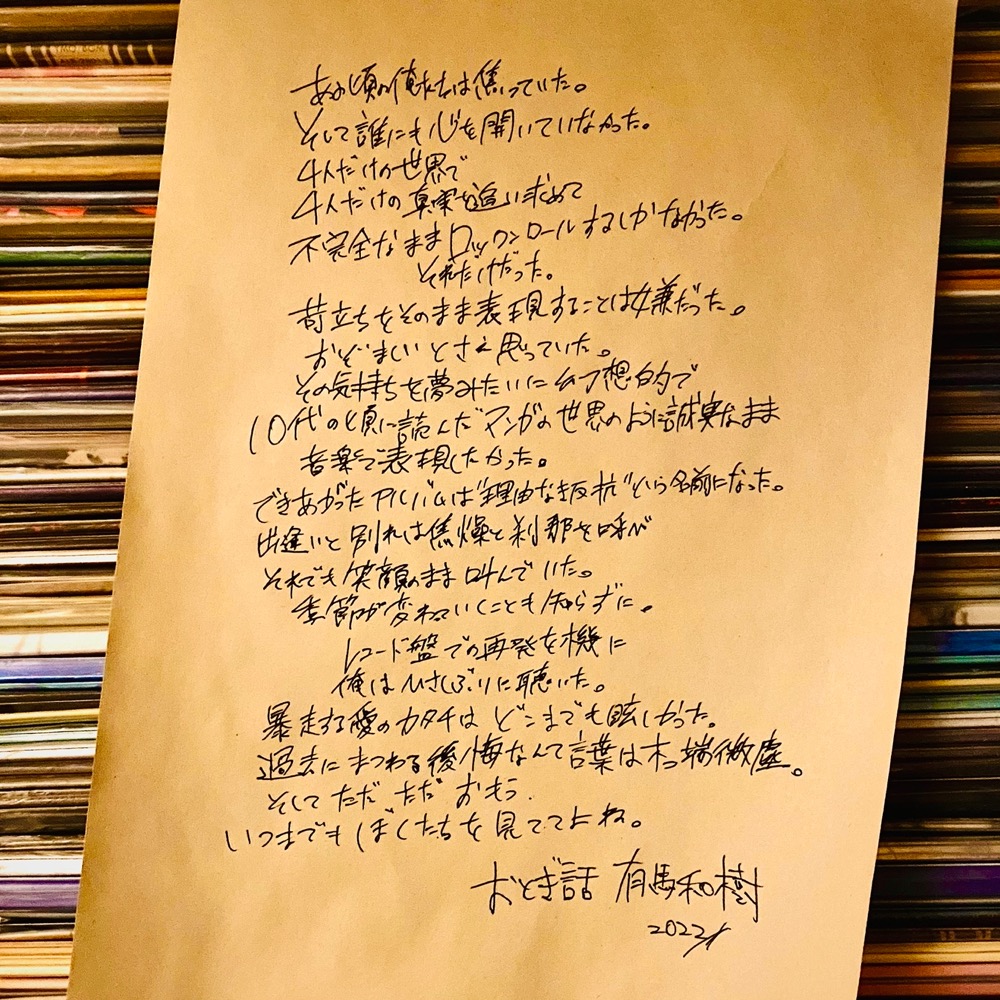 あの頃の俺たちは焦っていた。
そして誰にも心を開いていなかった。
4人だけの世界で
4人だけの真実を追い求めて
不完全なままロックンロールするしかなかった。
それだけだった。
苛立ちをそのまま表現することは嫌だった。
おぞましいとさえ思っていた。
その気持ちを夢みたいに幻想的で
10代の頃に読んだマンガの世界のように誠実なまま
音楽で表現したかった。
できあがったアルバムは"理由なき反抗"という名前になった。
出逢いと別れは焦燥と刹那を呼び
それでも笑顔のまま叫んでいた。
季節が変わっていくことも知らずに。
レコード盤での再発を機に
俺はひさしぶりに聴いた。
暴走する愛のカタチはどこまでも眩しかった。
過去にまつわる後悔なんて言葉は木っ端微塵。
そしてただただおもう
いつまでもぼくたちを見ててよね。
おとぎ話 有馬和樹